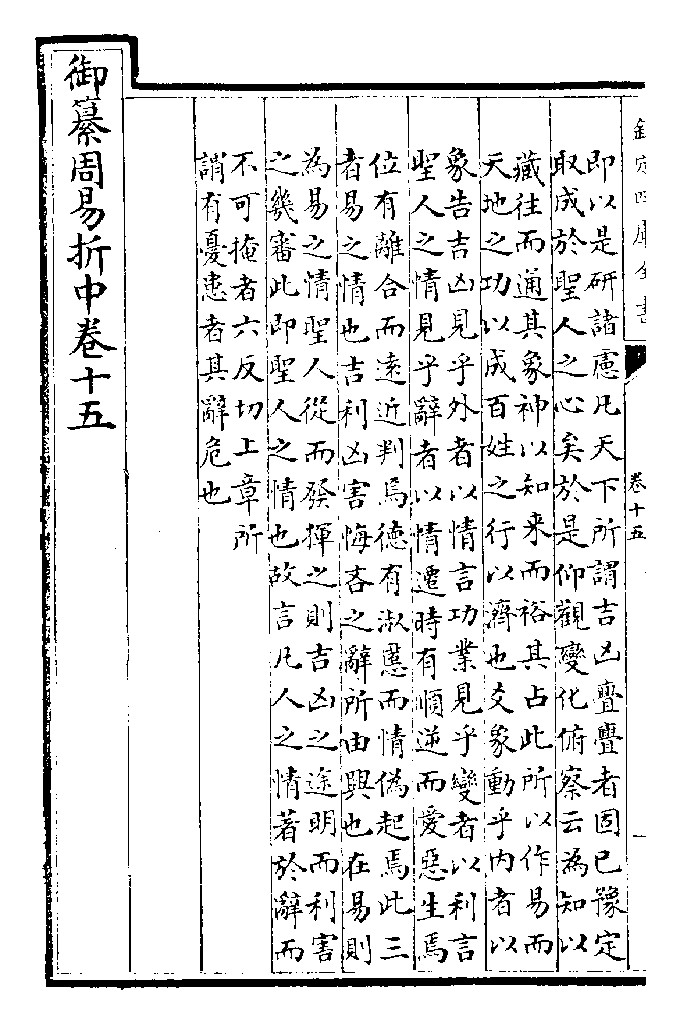 欽定四庫全書
卷十五
即以是研諸慮凡天下所謂吉凶亹亹者固已豫定
取成於聖人之心矣於是仰觀變化俯察云為知以
藏往而通其象神以知来而裕其占此所以作易而
天地之功以成百姓之行以濟也爻象動乎内者以
象告吉凶見乎外者以情言功業見乎變者以利言
聖人之情見乎辭者以情遷時有順逆而愛惡生焉
位有離合而遠近判焉德有淑慝而情偽起焉此三
者易之情也吉利凶害悔吝之辭所由興也在易則
為易之情聖人從而發揮之則吉凶之途明而利害
之幾審此即聖人之情也故言凡人之情著於辭而
不可掩者六反切上章所
謂有憂患者其辭危也
御纂周易折中卷十五